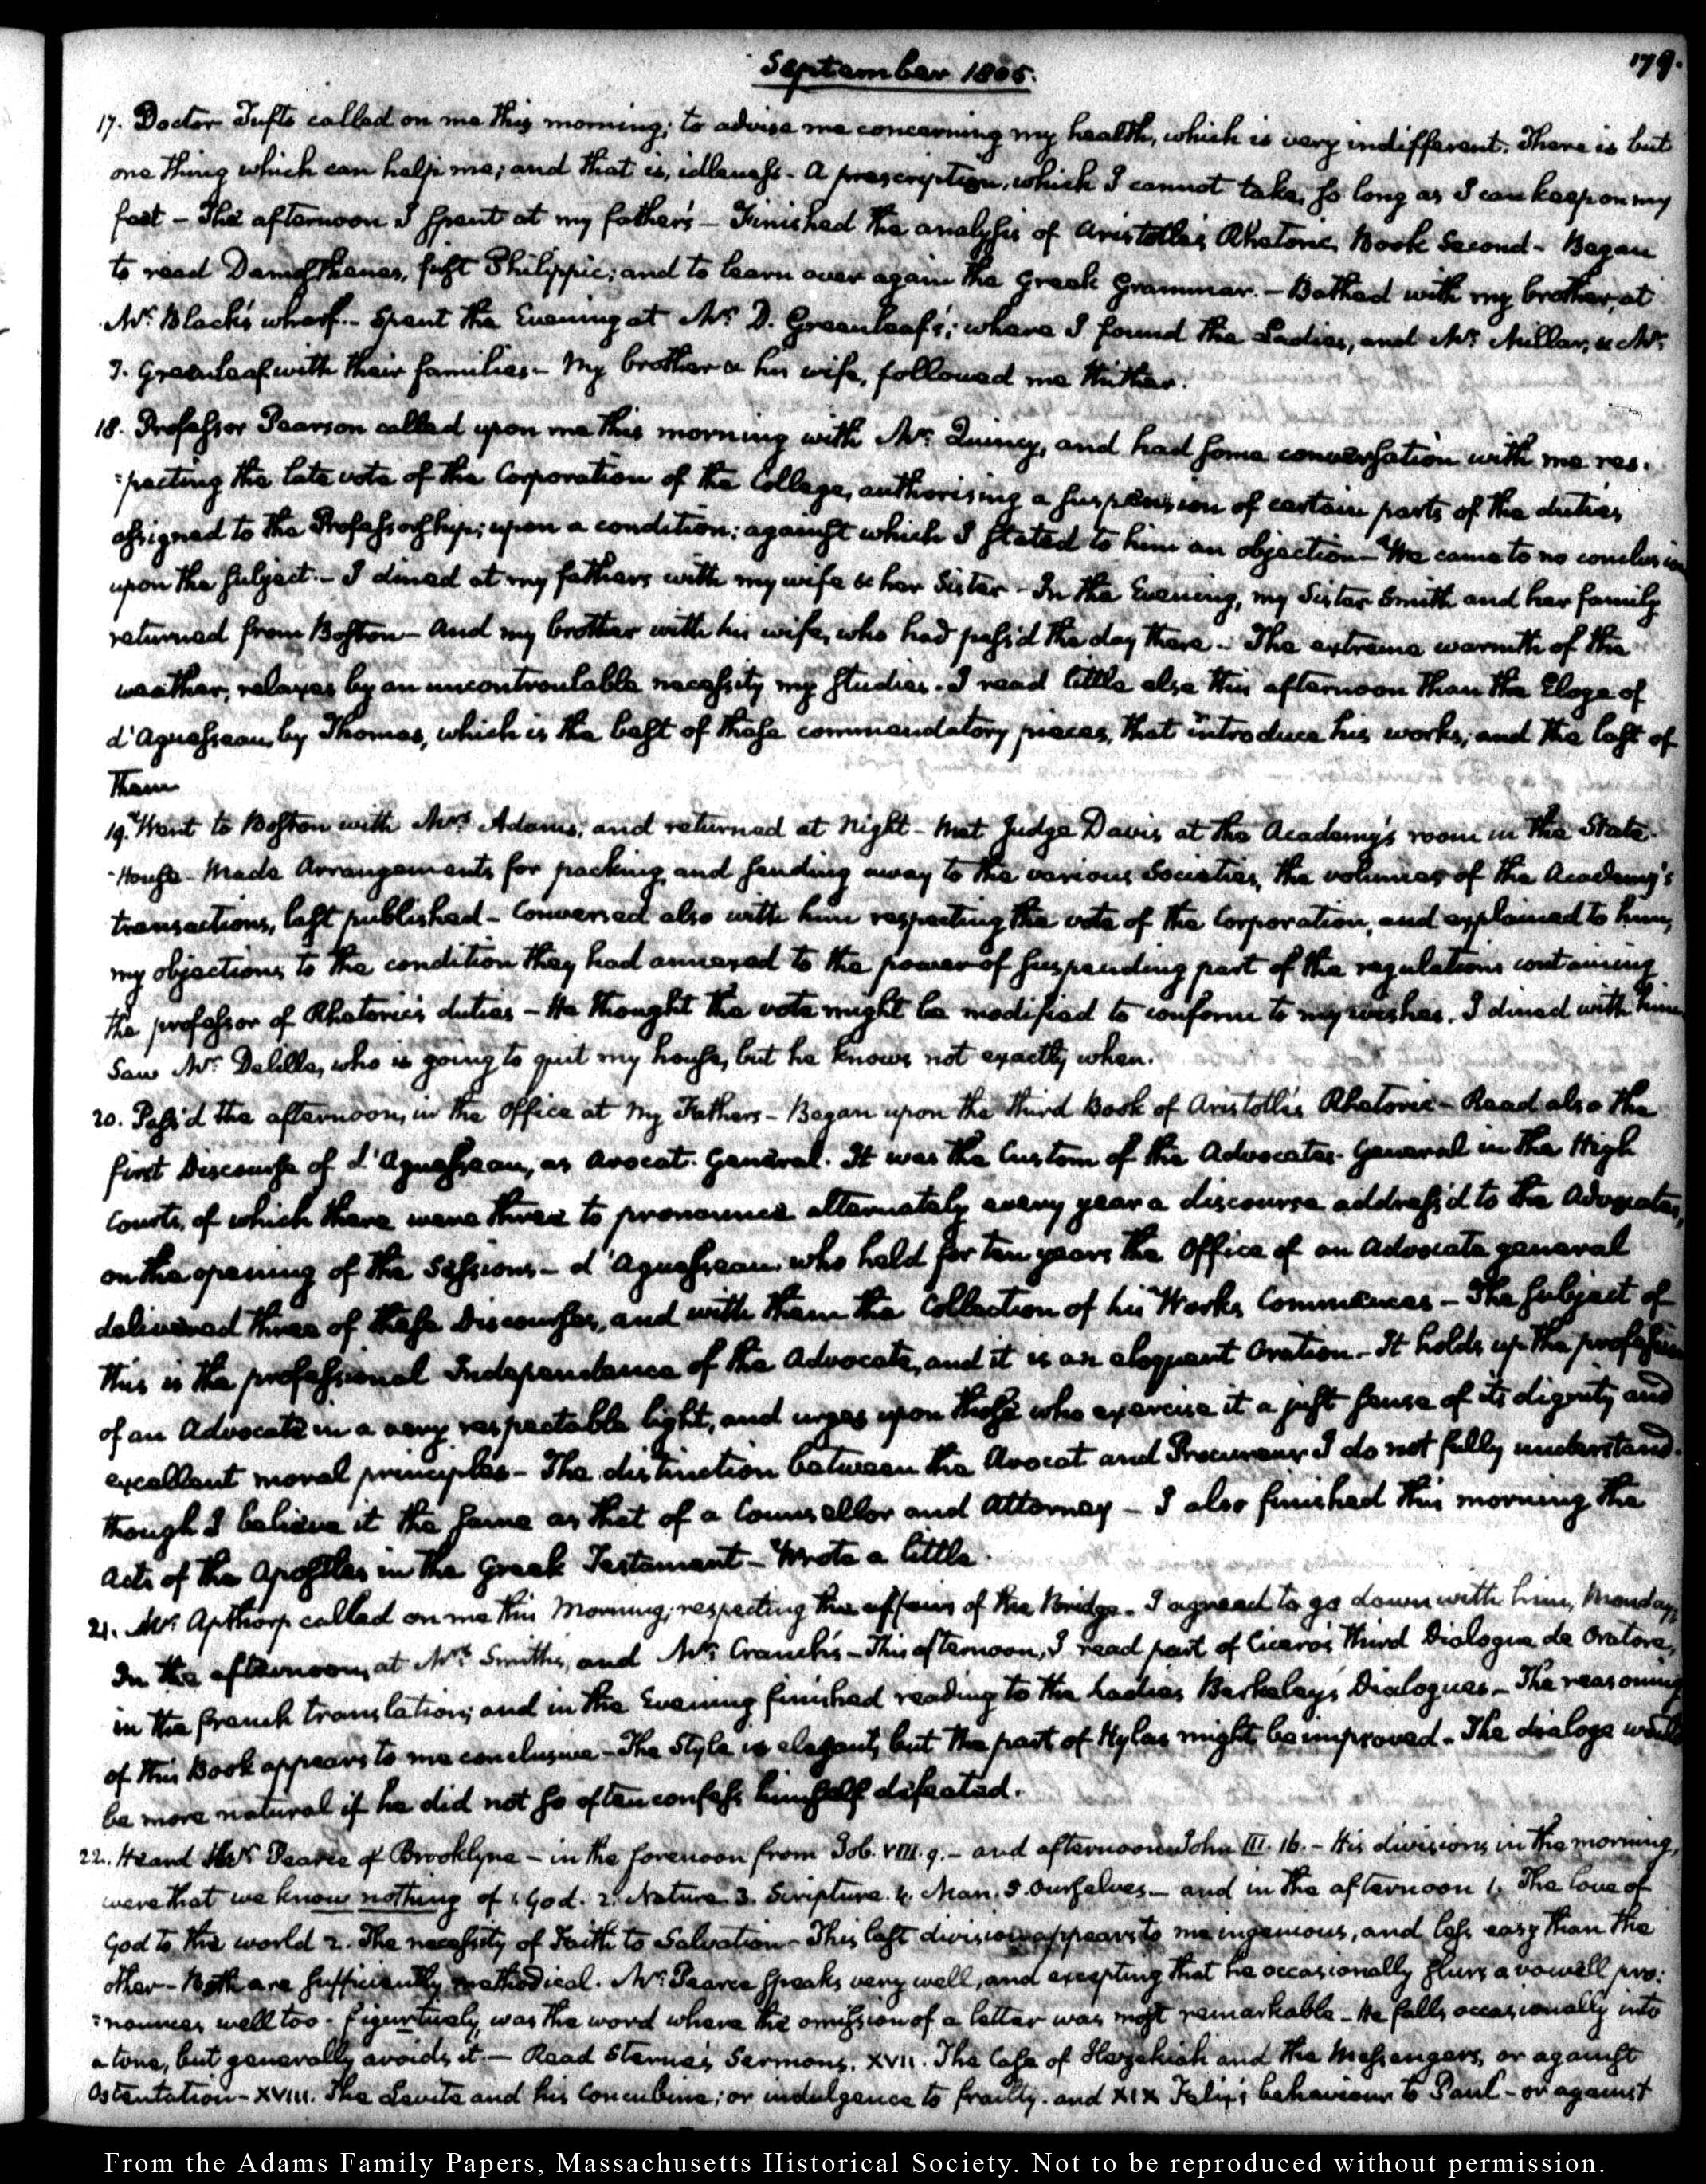 September 1805.
179.
17. Doctor Tufts called on me this morning; to advise me concerning my health, which is very indifferent. There is but
one thing which can help me; and that is, idleness - A prescription, which I cannot take, so long as I can keep on my
feet - The afternoon I spent at my father's - Finished the analysis of Aristotle's Rhetoric, Book Second - Began
to read Demosthenes, first Philippic; and to learn over again the Greek Grammar. - Bathed with my brother, at
Mr. Black's wharf. - Spent the Evening at Mr. D. Greenleaf's; where I found the Ladies, and Mr. Millar, & Mr.
J. Greenleaf with their families - My brother & his wife, followed me thither.
18. Professor Pearson called upon me this morning with Mr. Quincy, and had some conversation with me res-
=pecting the late vote of the Corporation of the College, authorising a suspension of certain parts of the duties
assigned to the Professorship; upon a condition: against which I stated to him an objection - We came to no conclusion
upon the subject. - I dined at my fathers with my wife & her Sister - In the Evening, my Sister Smith and her family
returned from Boston - And my brother with his wife, who had pass'd the day there. - The extreme warmth of the
weather, relaxes by an uncontroulable necessity my studies. I read little else this afternoon than the Eloge of
d'Aguesseau, by Thomas, which is the best of these commendatory pieces, that introduce his works, and the last of
them
19. Went to Boston with Mrs. Adams; and returned at Night - Met Judge Davis at the Academy's room in the State-
-House - Made Arrangements for packing and sending away to the various Societies, the volumes of the Academy's
transactions, last published - Conversed also with him respecting the vote of the Corporation, and explained to him,
my objections to the condition they had annexed to the power of suspending part of the regulations containing
the professor of Rhetoric's duties - He thought the vote might be modified to conform to my wishes. I dined with him
Saw Mr. Delille, who is going to quit my house, but he knows not exactly when.
20. Pass'd the afternoon, in the Office at my Fathers - Began upon the third Book of Aristotle's Rhetoric - Read also the
first Discourse of d'Aguesseau, as Avocat-General. It was the Custom of the Advocates-General in the High
Courts, of which there were three to pronounce alternately every year a discourse address'd to the Advocates,
on the opening of the Sessions - d'Aguesseau who held for ten years the Office of an Advocate general
delivered three of these Discourses, and with them the Collection of his Works Commences - The subject of
this is the professional Independence of the Advocate, and it is an eloquent Oration - It holds up the profession
of an Advocate in a very respectable light, and urges upon those who exercise it a just sense of its dignity and
excellent moral principles - The distinction between the Avocat and Procureur I do not fully understand.
though I believe it the same as that of a Counsellor and Attorney - I also finished this morning the
Acts of the Apostles in the Greek Testament - Wrote a little.
21. Mr. Apthorp called on me this Morning; respecting the affairs of the Bridge. I agreed to go down with him, Monday,
In the afternoon, at Mrs. Smith's, and Mr. Cranch's - This afternoon, I read part of Cicero's third Dialogue de Oratore,
in the french translation; and in the Evening finished reading to the Ladies Berkeley's Dialogues - The reasoning
of this Book appears to me conclusive - The Style is elegant, but the part of Hylas might be improved. - The dialoge would
be more natural if he did not so often confess himself defeated.
22. Heard Mr. Pearce of Brooklyne - in the forenoon from Job. VIII. 9. - and afternoon John III. 16. - His divisions in the morning,
were that we know nothing of 1. God. 2. Nature 3. Scripture. 4. Man. 5. Ourselves - and in the afternoon 1. The love of
God to the world 2. The necessity of Faith to Salvation - This last division appears to me ingenious, and less easy than the
other - Both are sufficiently methodical. Mr. Pearce speaks very well, and excepting that he occasionally slurs a vowell pro:
=nounces well too - figurtively, was the word where the omission of a letter was most remarkable - He falls occasionally into
a tone, but generally avoids it. - Read Sterne's Sermons. XVII. The Case of Hezekiah and the Messengers, or against
Ostentation - XVIII. The Levite and his Concubine; or indulgence to frailty. and XIX Felix's behaviour to Paul - or against
From the Adams Family Papers, Massachusetts Historical Society. Not to be reproduced without permission.